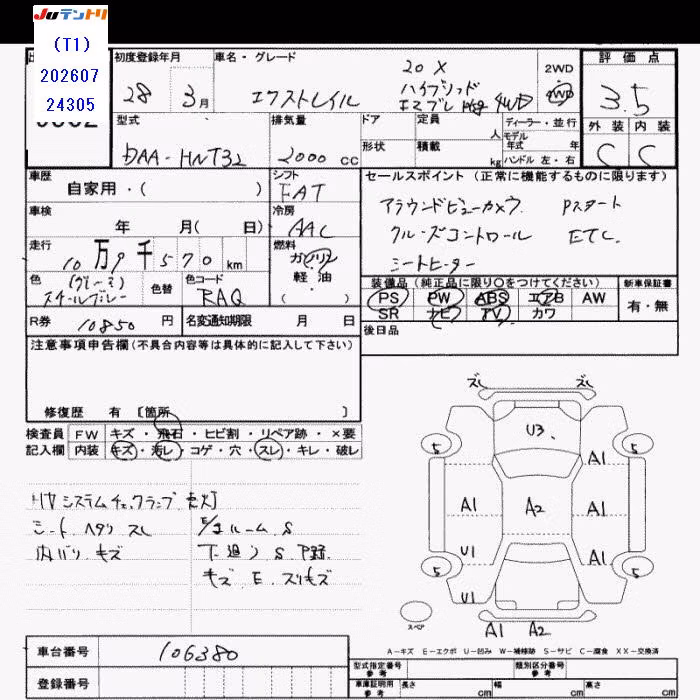 JUテントリ
(T1)
202607
24305
初度登録年月
28 3月
車名・グレード
エクストレイル
20X
ハイブリッド
エマブレ Pkg 4WD
2WD
4WD
評価点
3.5
外装 内装
C C
型式
DAA-HNT32
排気量
2000 CC
ドア
形状
定員
人
積載
kg
ディーラー・並行
モデル
年式 年
ハンドル 左・右
車歴
自家用・( )
シフト
FAT
車検
年 月( 日)
冷房
AAC
走行
10万9千570km
燃料
ガソリン
軽・油
( )
色
(グレー)
スチールブルー
色替
色コード
RAQ
R券
10850円
名変通知期限 月 日
セールスポイント(正常に機能するものに限ります)
アラウンドビューカメラ. Pスタート
クルーズコントロール ETC.
シートヒーター
装備品(純正品に限り○をつけてください)
PS PW ABS エアB AW
SR ナビ TV カワ
新車保証書
有・無
後日品
注意事項申告欄(不具合内容等は具体的に記入して下さい)
修復歴 有 [箇所 ]
検査員
記入欄
FW キズ・飛石・ヒビ割・リペア跡・×要
内装 キズ・汚レ・コゲ・穴・スレ・キレ・破レ
HVシステムチェックランプ 点灯
シート ヘタリ スレ
内バリ キズ
E/gルーム S
下廻り S 下野
キズ E スリキズ
ズレ ズレ
U3
5 5
A1
A1 A2 A1
U1 A1
5 5
U1
スペア
A1 A2
A-キズ E-エクボ U-凹み W-補修跡 S-サビ C-腐食 XX-交換済
車台番号 106380
登録番号
型式指定番号
参考
類別区分番号
参考
車庫証明用
参考
長さ cm 幅 cm 高さ cm